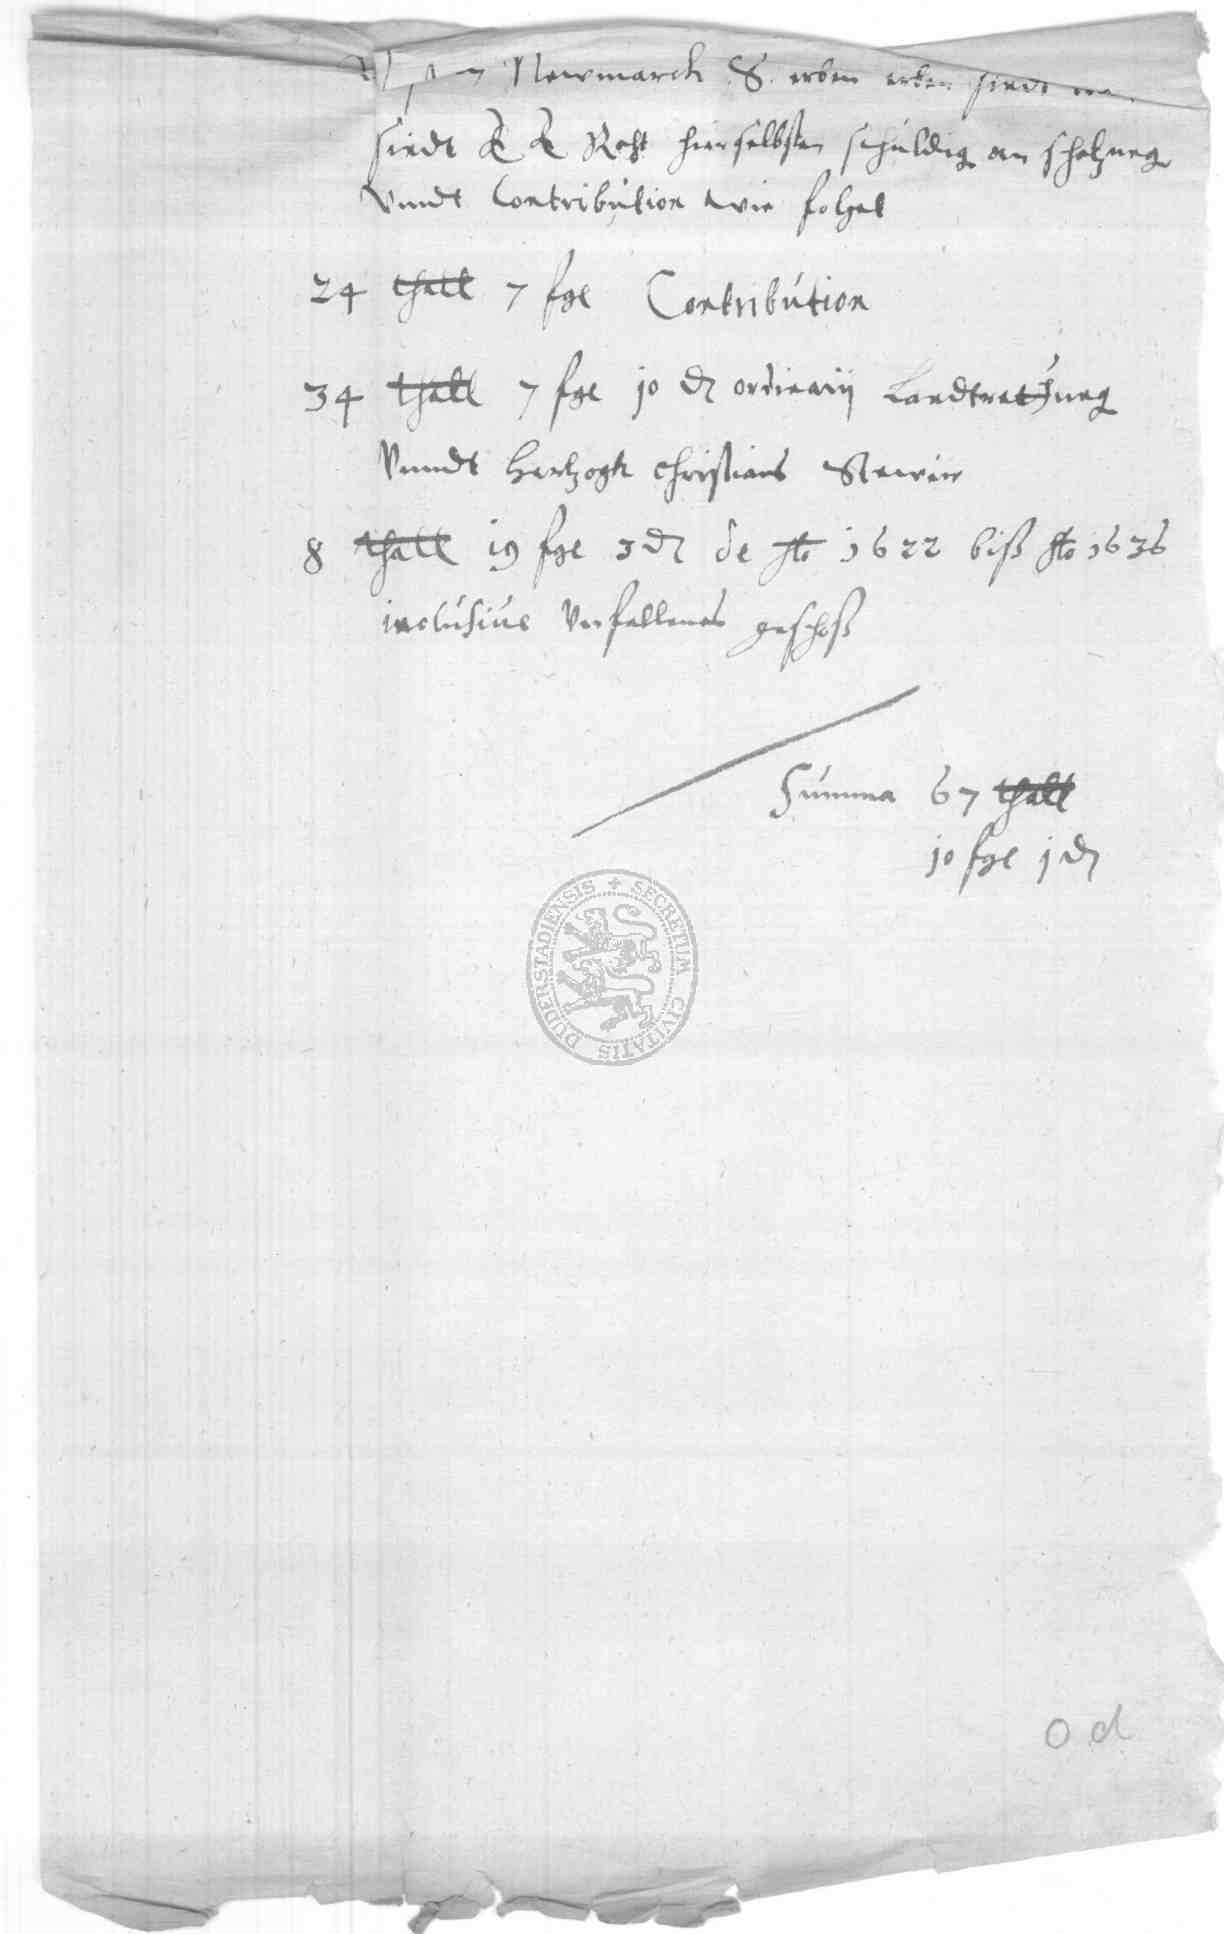 Newmarck S. erben
sindt E E Raht hierselbsten schuldig an schatzung
Vnndt Contribution wie folget
24 thall 7 fgl Contribution
34 thall 7 fgl 10 d ordinarij Landtrettung
Vnndt Hertzogk Christians Stewer
8 thall 19 fgl 3 d de Ao 1622 biß Ao 1636
inclusiue Verfallenes geschoß
Summa 67 thall
10 fgl 1 d
SECRETUM CIVITATIS DUDERSTADIENSIS
o d